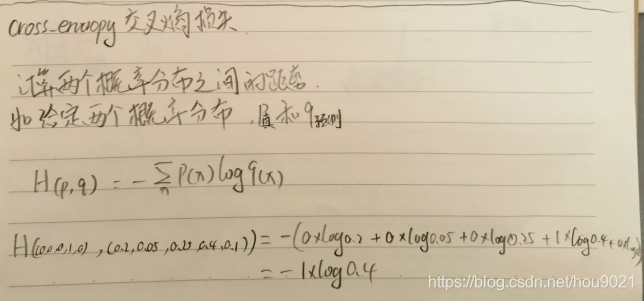 cross-entropy 交叉熵损失
计算两个概率分布之间的距离.
如给定两个概率分布, 真和q预测
H(p,q) = -∑n P(x) log q(x)
H((0,0,0,1,0), (0.2,0.05,0.25,0.4,0.1)) = -(0×log0.2 + 0×log0.05 + 0×log0.25 + 1×log0.4 + 0×log
= -1×log0.4
https://blog.csdn.net/hou9021